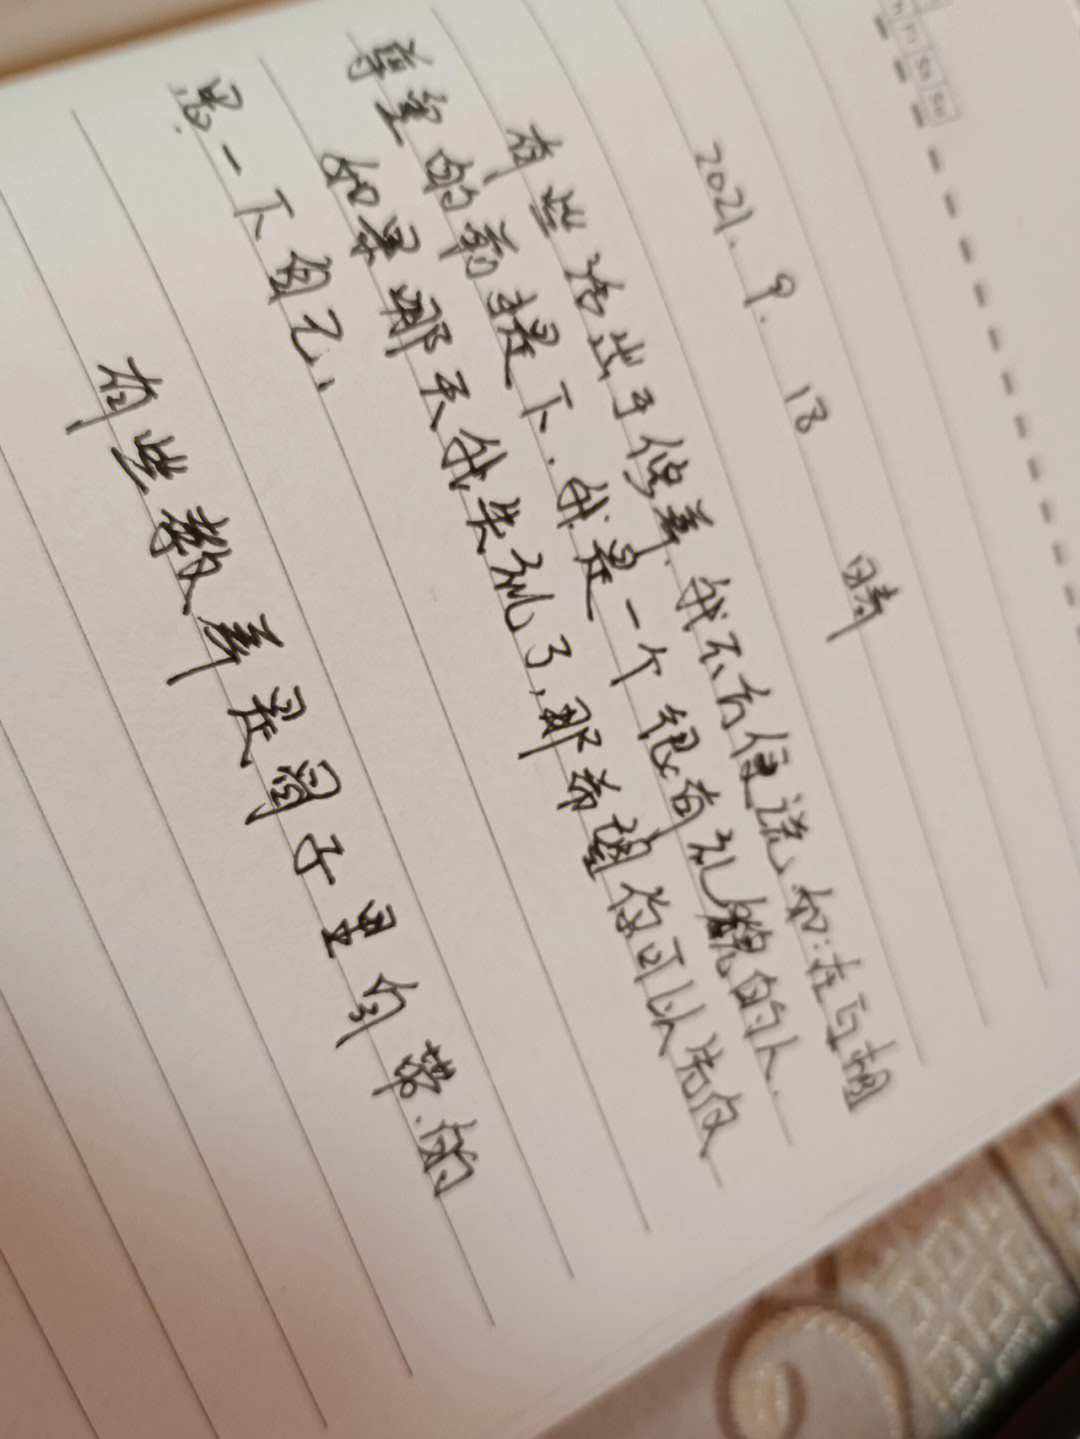 2021. 9. 18 晴
有些话出于修养，我不方便说，如：在互相
尊重的前提下，我是一个很有礼貌的人.
如果哪天我失礼了，那希望你可以先反
思一下自己，
有些教养是骨子里自带的